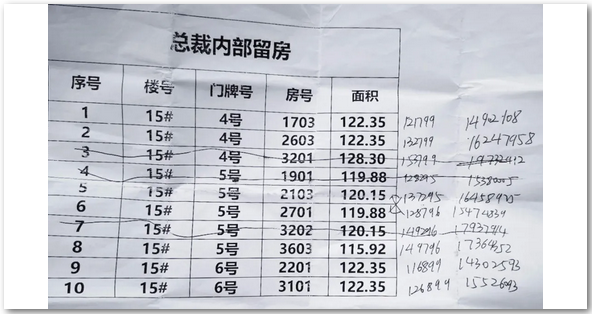 总裁内部留房
序号 楼号 门牌号 房号 面积
1 15# 4号 1703 122.35 121799 14902108
2 15# 4号 2603 122.35 132799 16247958
3 15# 4号 3201 128.30 153799 19732412
4 15# 5号 1901 119.88 128295
5 15# 5号 2103 120.15 137295
6 15# 5号 2701 119.88 128796
7 15# 5号 3202 120.15 149296
8 15# 5号 3603 115.92 149796
9 15# 6号 2201 122.35 116899 14302593
10 15# 6号 3101 122.35 126899